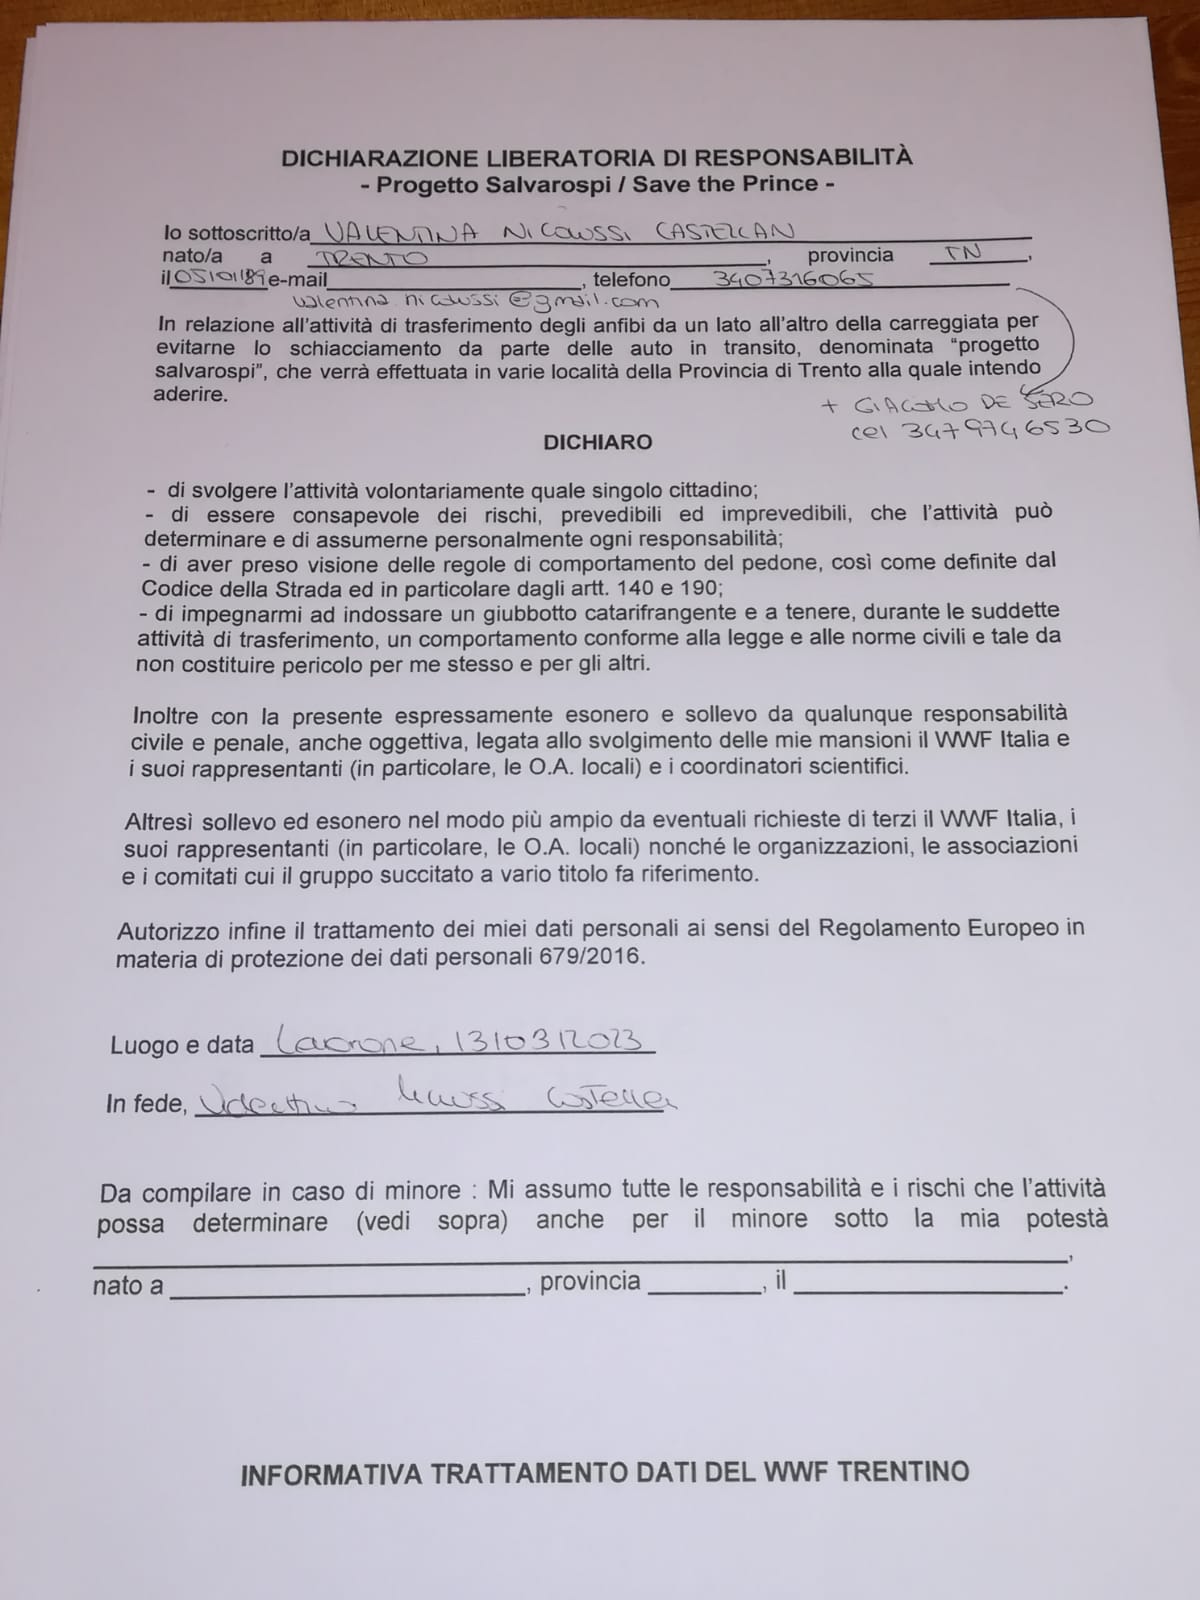 DICHIARAZIONE LIBERATORIA DI RESPONSABILITÀ
- Progetto Salvarospi / Save the Prince -
Io sottoscritto/a VALENTINA NICOLUSSI CASTELLAN
nato/a a TRENTO, provincia TN,
il 05/01/89 e-mail, telefono 3407316065
valentina.nicolussi@gmail.com
In relazione all'attività di trasferimento degli anfibi da un lato all'altro della carreggiata per
evitarne lo schiacciamento da parte delle auto in transito, denominata "progetto
salvarospi", che verrà effettuata in varie località della Provincia di Trento alla quale intendo
aderire.
+ GIACOMO DE SERO
cel 3479746530
DICHIARO
- di svolgere l'attività volontariamente quale singolo cittadino;
- di essere consapevole dei rischi, prevedibili ed imprevedibili, che l'attività può
determinare e di assumerne personalmente ogni responsabilità;
- di aver preso visione delle regole di comportamento del pedone, così come definite dal
Codice della Strada ed in particolare dagli artt. 140 e 190;
- di impegnarmi ad indossare un giubbotto catarifrangente e a tenere, durante le suddette
attività di trasferimento, un comportamento conforme alla legge e alle norme civili e tale da
non costituire pericolo per me stesso e per gli altri.
Inoltre con la presente espressamente esonero e sollevo da qualunque responsabilità
civile e penale, anche oggettiva, legata allo svolgimento delle mie mansioni il WWF Italia e
i suoi rappresentanti (in particolare, le O.A. locali) e i coordinatori scientifici.
Altresì sollevo ed esonero nel modo più ampio da eventuali richieste di terzi il WWF Italia, i
suoi rappresentanti (in particolare, le O.A. locali) nonché le organizzazioni, le associazioni
e i comitati cui il gruppo succitato a vario titolo fa riferimento.
Autorizzo infine il trattamento dei miei dati personali ai sensi del Regolamento Europeo in
materia di protezione dei dati personali 679/2016.
Luogo e data Lavarone, 13/03/2023
In fede, Valentina Nicolussi Castellan
Da compilare in caso di minore : Mi assumo tutte le responsabilità e i rischi che l'attività
possa determinare (vedi sopra) anche per il minore sotto la mia potestà
,
nato a , provincia , il .
INFORMATIVA TRATTAMENTO DATI DEL WWF TRENTINO